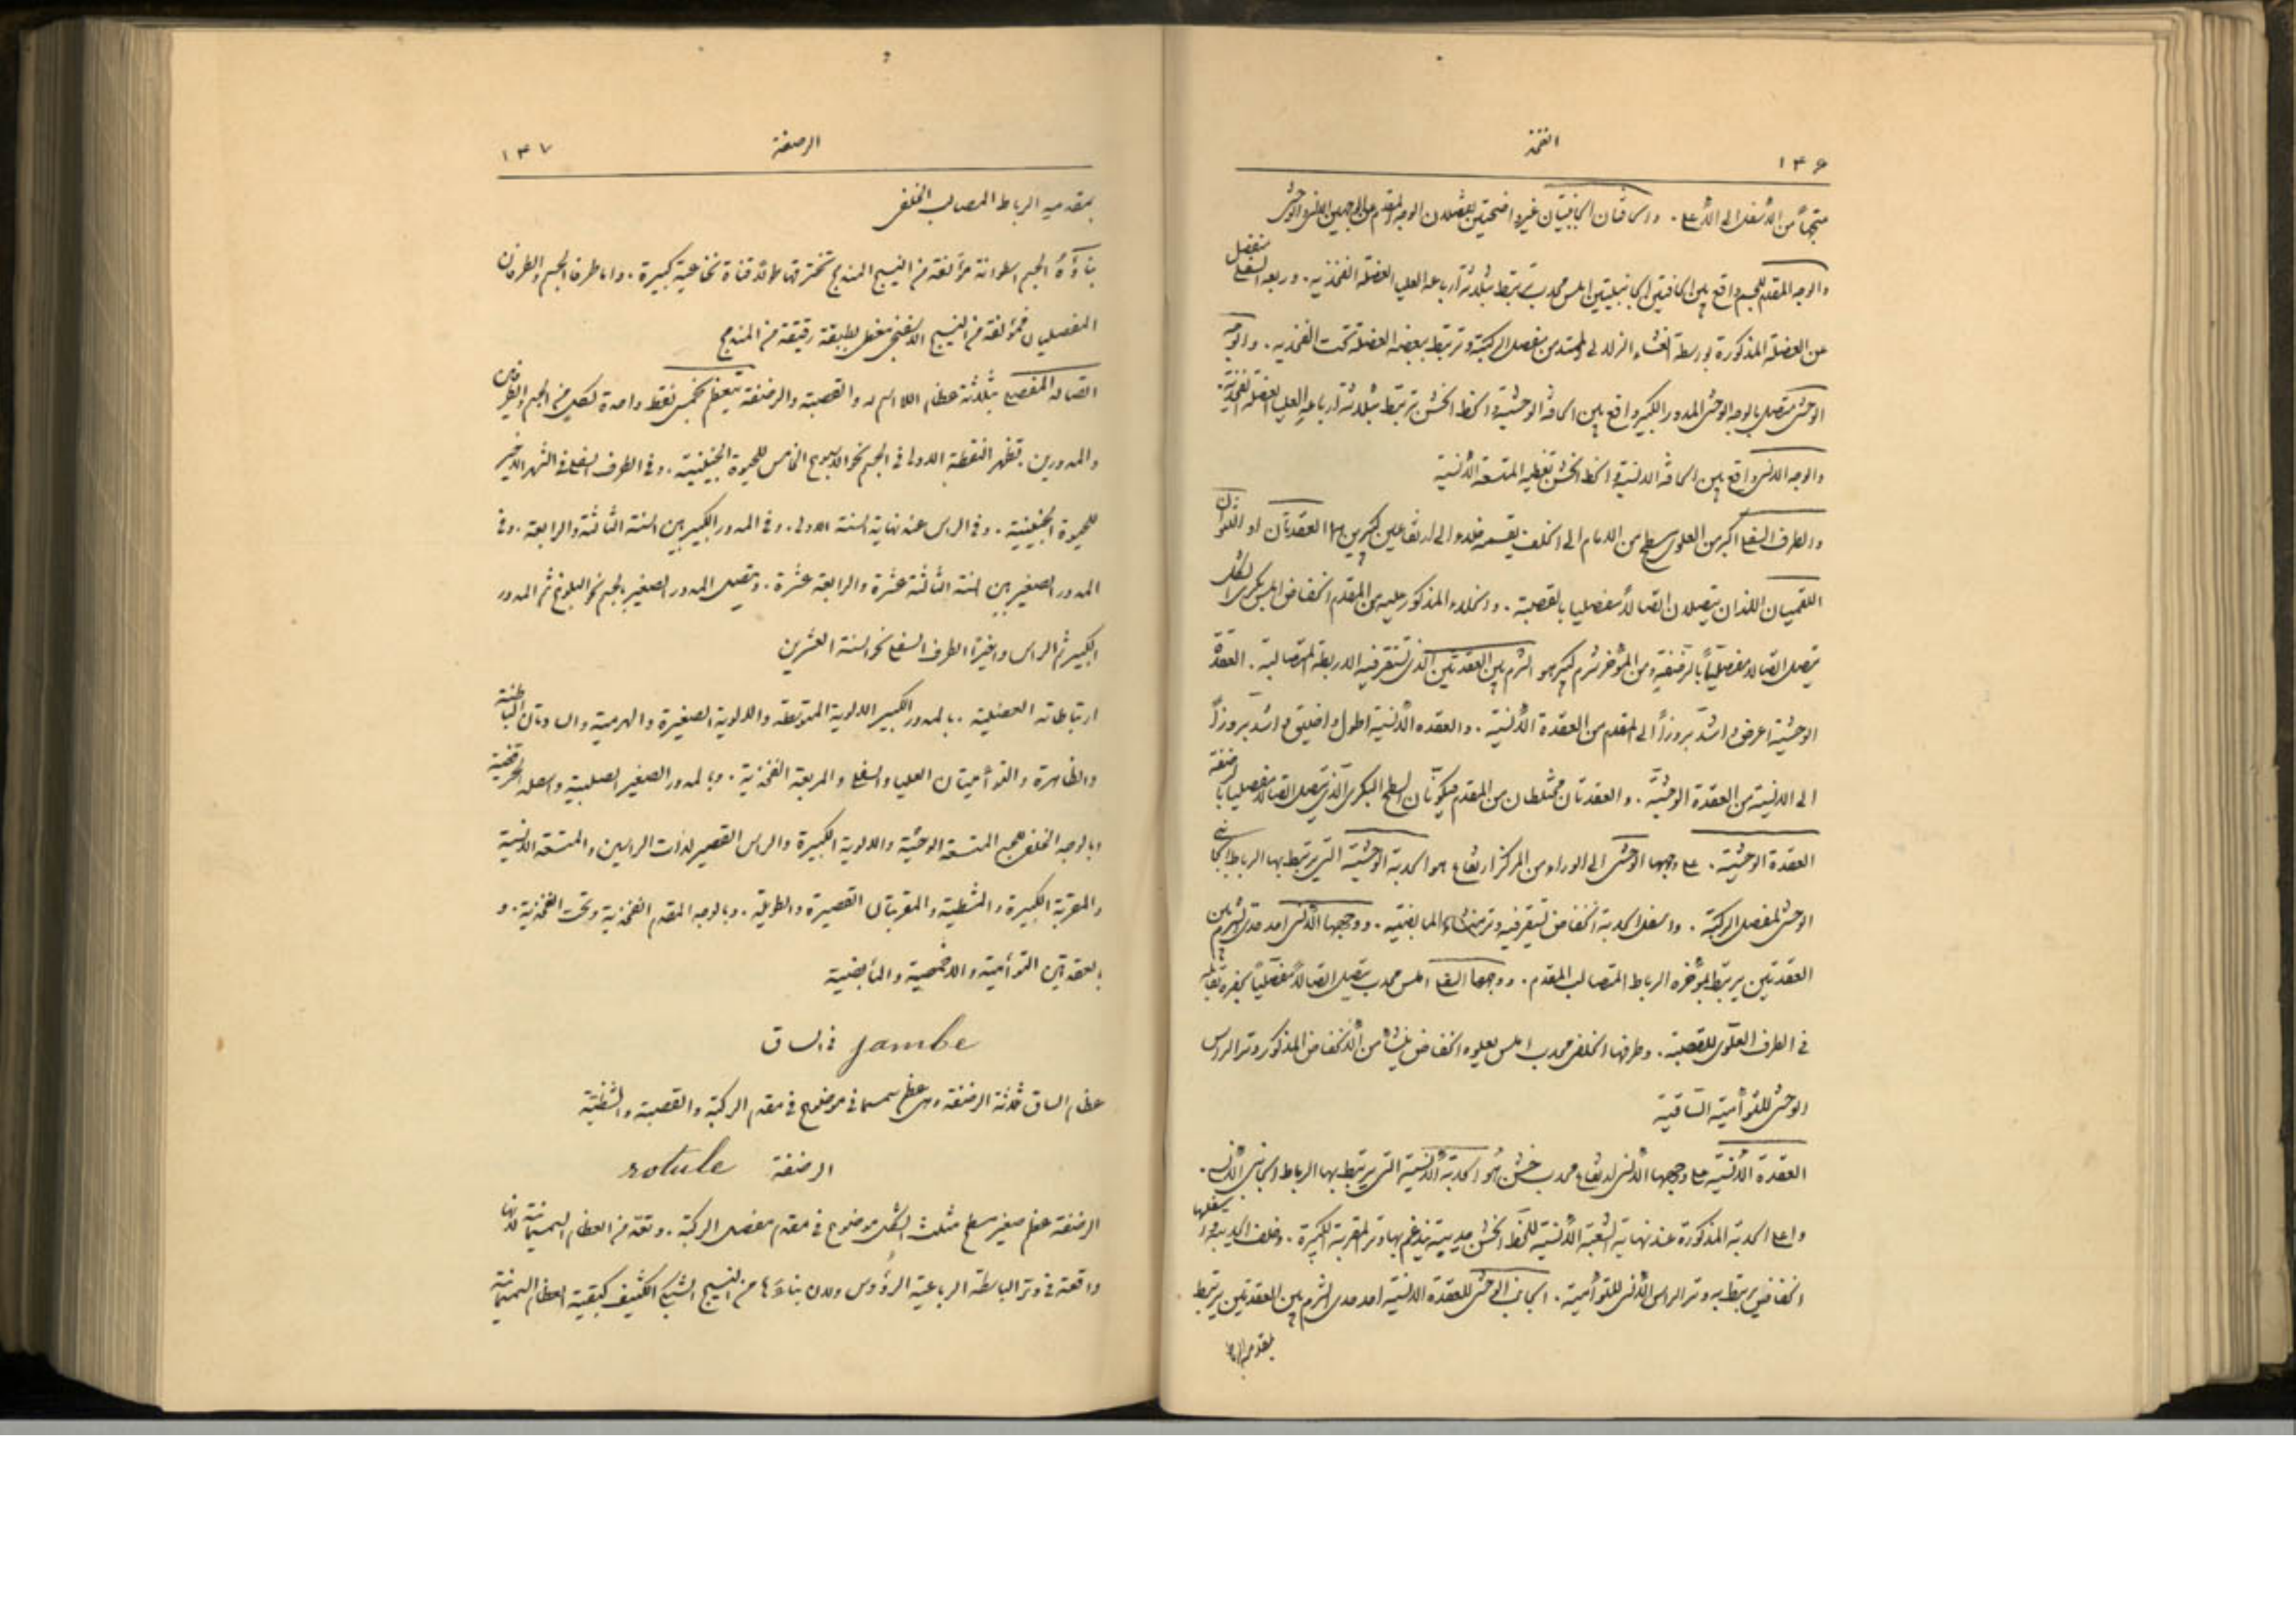 ١٣٦
الفخذ
متجهاً من الأسفل الى الأعلى . والحافتان الجانبيتان غير واضحتين تفصلان الوجه المقدم عن الوجهين الانسي والوحشي
والوجه المقدم للجسم واقع بين الحافتين الجانبيتين املس محدب ترتبط بثلاثة أرباعه العليا العضلة الفخذية . وربعه السفلي منفصل
عن العضلة المذكورة بواسطة الغشاء الزلالي الممتد من مفصل الركبة وترتبط ببعضه العضلة تحت الفخذية . والوجه
الوحشي متصل بالوجه الوحشي للمدور الكبير واقع بين الحافة الوحشية والخط الخشن ترتبط بثلاثة أرباعه العليا العضلة الفخذية .
والوجه الانسي واقع بين الحافة الانسية والخط الخشن تغطيه المتسعة الأنسية
والطرف السفلي اكبر من العلوي مسطح من الامام الى الخلف يقسمه خلاء الى ارتفاعين كبيرين هما العقدتان او اللقوان
اللقميان اللذان يتصلان اتصالاً مفصليا بالقصبة . والخلاء المذكور عليه من المقدم انخفاض املس بكري الشكل
يتصل اتصالاً مفصلياً بالرضفة ومن المؤخر شرم كبير هو الشرم بين العقدتين الذي تستقر فيه الاربطة المتصالبة . العقدة
الوحشية اعرض واشد بروزاً الى المقدم من العقدة الأنسية . والعقدة الأنسية اطول واضيق واشد بروزاً
الى الانسية من العقدة الوحشية . والعقدتان مختلطان من المقدم فيكونان السطح البكري الذي يتصل اتصالاً مفصليا بالرضفة
العقدة الوحشية . على وجهها الوحشي الى الوراء من المركز ارتفاع هو الحدبة الوحشية التي يرتبط بها الرباط الجانبي
الوحشي لمفصل الركبة . واسفل الحدبة انخفاض تستقر فيه وتر منشاء المابضية . ووجهها الأنسي احد حدي الشرم بين
العقدتين يرتبط بمؤخره الرباط المتصالب المقدم . ووجهها السفلي املس محدب يتصل اتصالاً مفصلياً بحفرة تقابله
في الطرف العلوي للقصبة . وطرفها الخلفي محدب املس يعلوه انخفاض ينشأ من الأنخفاض المذكور وتر الراس
الوحشي للتوأمية الساقية
العقدة الأنسية على وجهها الأنسي ارتفاع محدب خشن هو الحدبة الأنسية التي يرتبط بها الرباط الجانبي الأنسي .
واعلى الحدبة المذكورة عند نهاية الشعبة الأنسية للخط الخشن حديبة يندغم بها وتر المقربة الكبيرة . وخلف الحديبة واسفلها
انخفاض يرتبط به وتر الراس الأنسي للتوأمية . الجانب الوحشي للعقدة الانسية احد حدي الشرم بين العقدتين يرتبط
بمقدميه الرباط
١٣٧
الرضفة
بمقدميه الرباط المصالب الخلفي
بناؤه الجسم اسطوانة مؤلفة من النسيج المندمج تخترقها طولاً قناة نخاعية كبيرة . واما طرفا الجسم والطرفان
المفصليان فمؤلفة من النسيج الاسفنجي مغطى بطبقة رقيقة من المندمج
اتصاله المفصلي بثلاثة عظام اللااسم له والقصبة والرضفة يتعظم بخمس نقط واحدة لكل من الجسم والطرفين
والمدورين . تظهر النقطة الاولى في الجسم نحو الاسبوع الخامس للحيوة الجنينية . وفي الطرف السفلي في الشهر الاخير
للحيوة الجنينية . وفي الراس عند نهاية السنة الاولى . وفي المدور الكبير بين السنة الثالثة والرابعة . وفي
المدور الصغير بين السنة الثالثة عشرة والرابعة عشرة . ويتصل المدور الصغير بالجسم نحو البلوغ ثم المدور
الكبير ثم الراس واخيرا الطرف السفلي نحو السنة العشرين
ارتباطاته العضلية . بالمدور الكبير الالوية المتوسطة والالوية الصغيرة والهرمية والسادتان الباطنة
والظاهرة والتوأميتان العليا والسفلى والمربعة الفخذية . وبالمدور الصغير الصلبية واسفله الحرقفية
وبالوجه الخلفي للجسم المتسعة الوحشية والالوية الكبيرة والراس القصير لذات الراسين والمتسعة الانسية
والمقربة الكبيرة والمشطية والمقربتان القصيرة والطويلة . وبالوجه المقدم الفخذية وتحت الفخذية . و
بالعقدتين التوأمية والاخمصية والمأبضية
في الساق jambe
عظام الساق ثلاثة الرضفة وهي عظم سمسماني موضوع في مقدم الركبة والقصبة والشظية
الرضفة rotule
الرضفة عظم صغير مسطح مثلث الشكل موضوع في مقدم مفصل الركبة . وتعد من العظام السمسمانية لانها
واقعة في وتر الباسطة الرباعية الرؤوس ولان بناءها من النسيج الشبكي الكثيف كبقية العظام السمسمانية